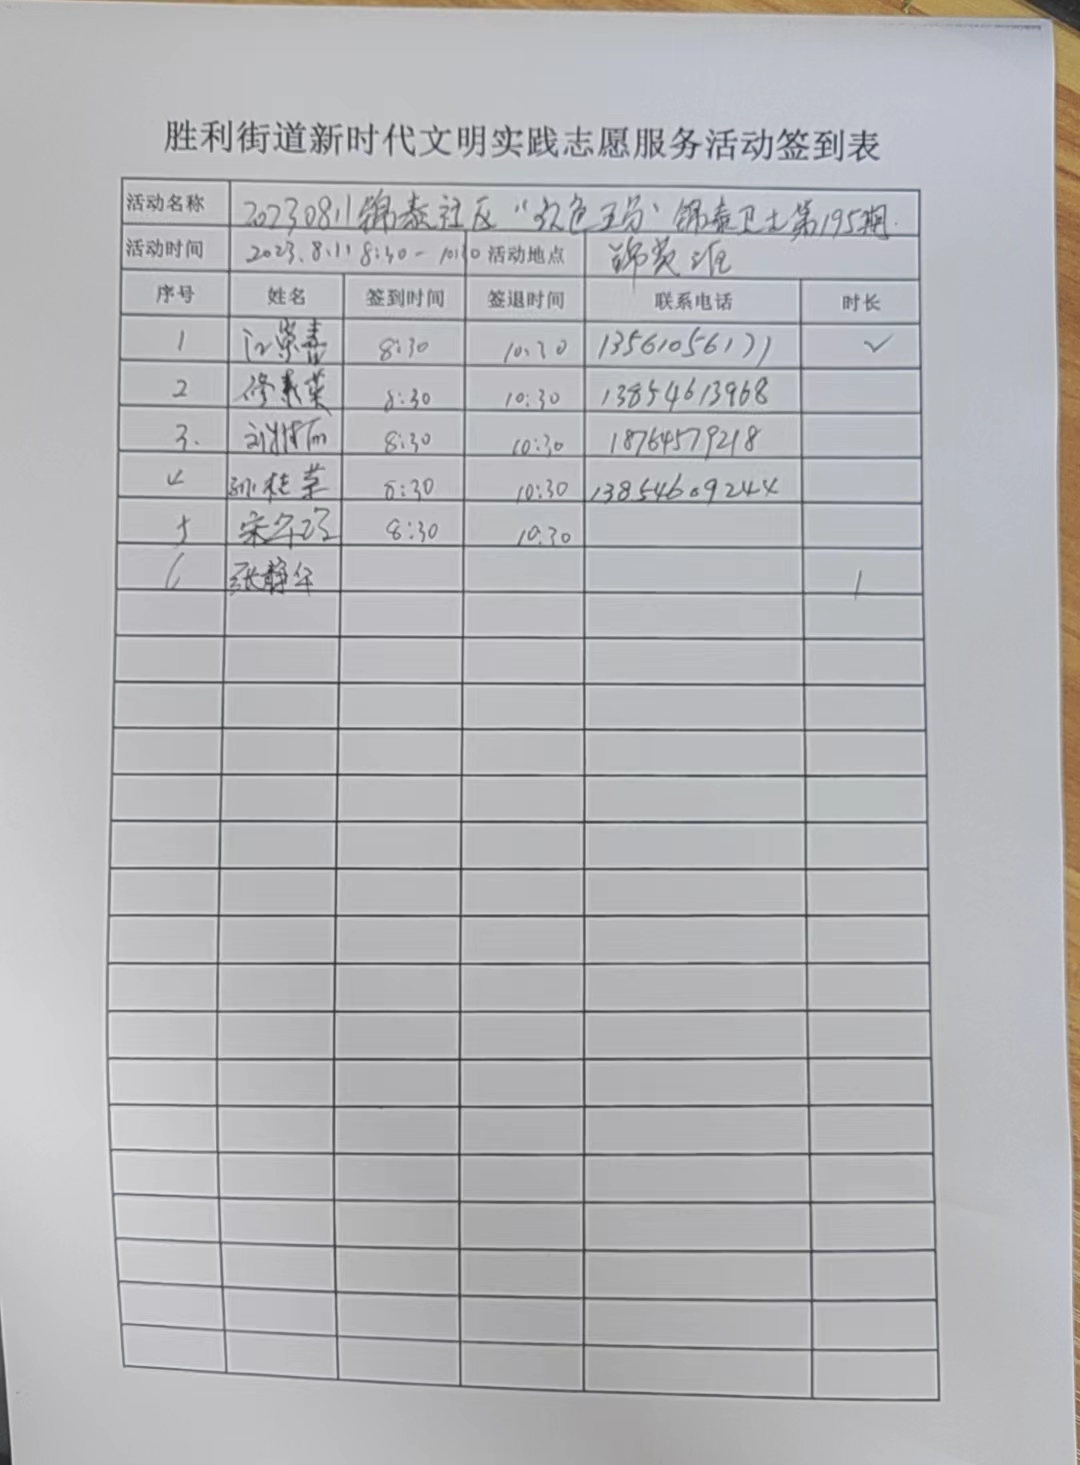 胜利街道新时代文明实践志愿服务活动签到表
活动名称 20230811锦泰社区“红色 锦泰卫士第195期.
活动时间 2023.8.11 8:30-10:30 活动地点
序号 姓名 签到时间 签退时间 联系电话 时长
1 8:30 10:30 13561056171 ✓
2 8:30 10:30 13854613968
3. 8:30 10:30 18764579218
4 孙桂荣 8:30 10:30 13854609244
5 8:30 10:30
6 张静华